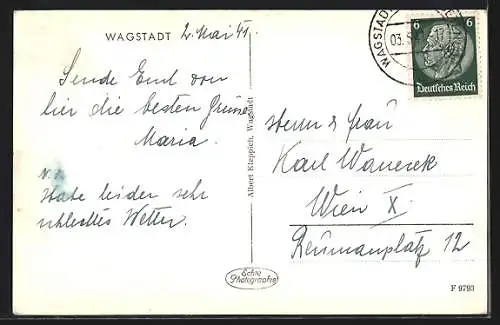 WAGSTADT 2. Mai 41.
Sende Euch von
hier die besten Grüße
Maria.
N. S.
Habe leider sehr
schlechtes Wetter.
Albert Klzeppich, Wagstadt
Echte
Photographie
WAGSTADT
03. 5.
6 6
Deutsches Reich
Herrn & Frau
Karl Wanecek
Wien X.
Reumannplatz 12
F 9793